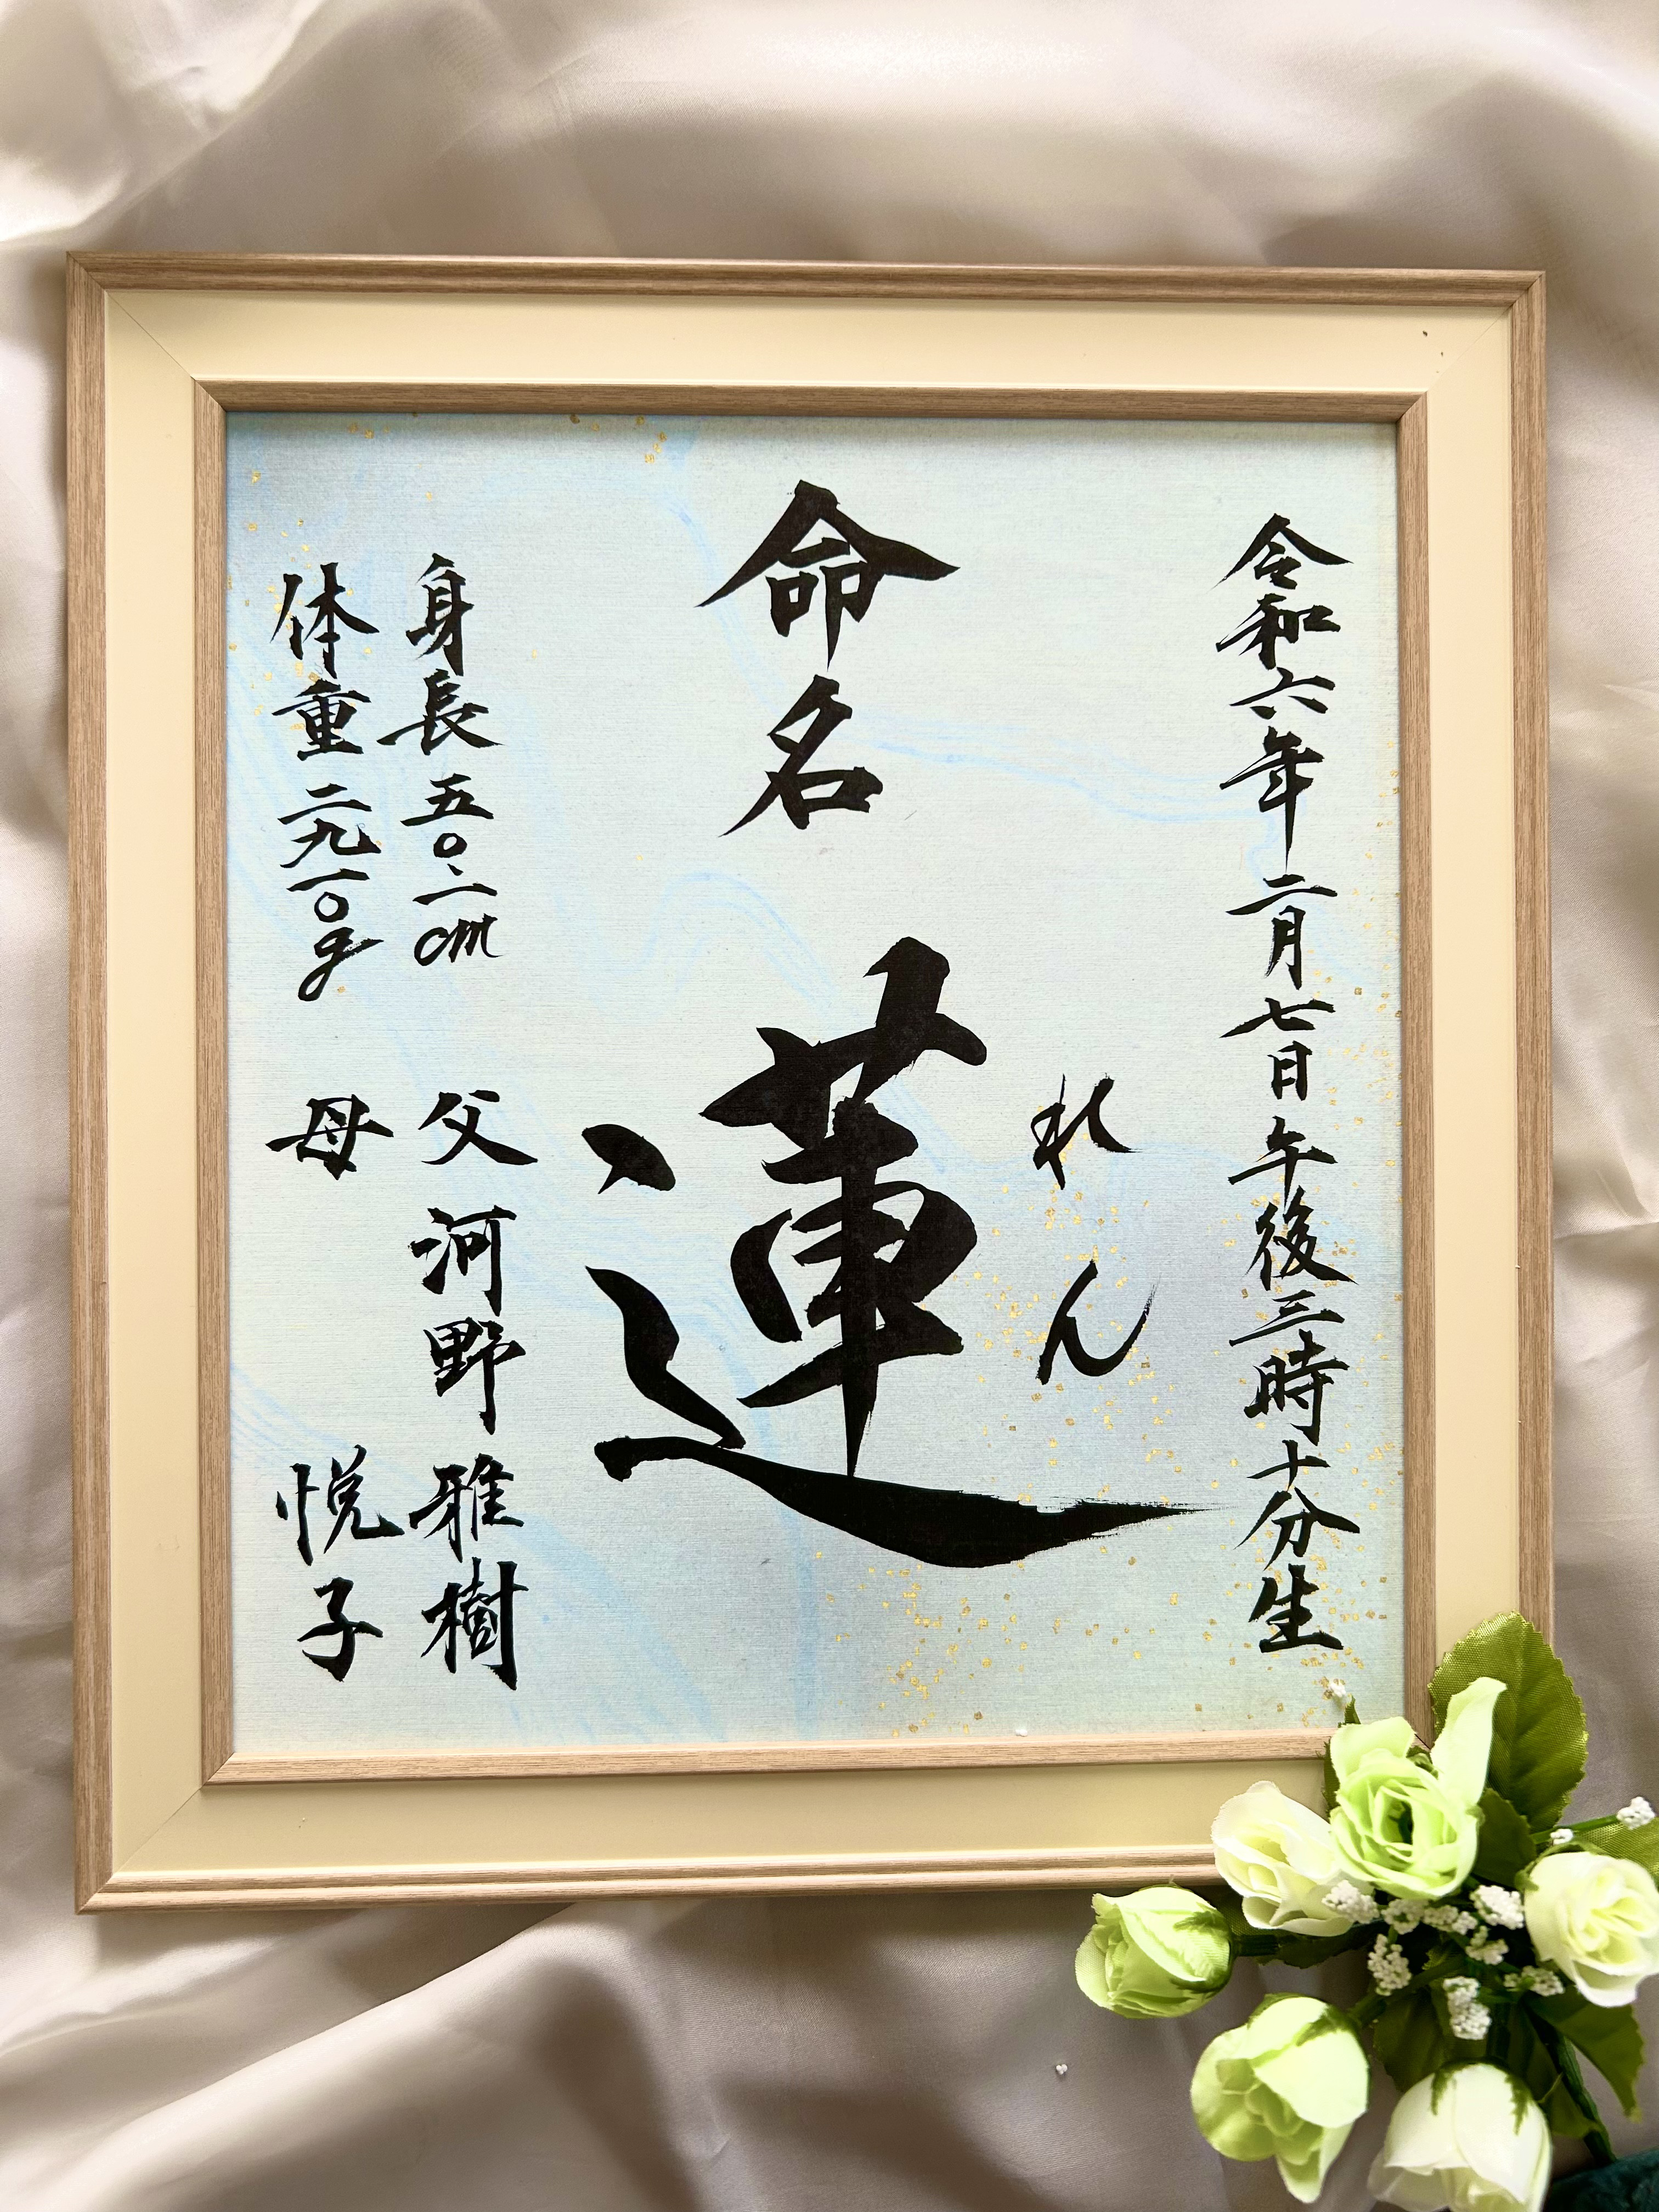 令和六年二月七日午後三時十分生
命名
れん
蓮
身長五〇.二cm
体重二九一〇g
父 河野雅樹
母 悦子